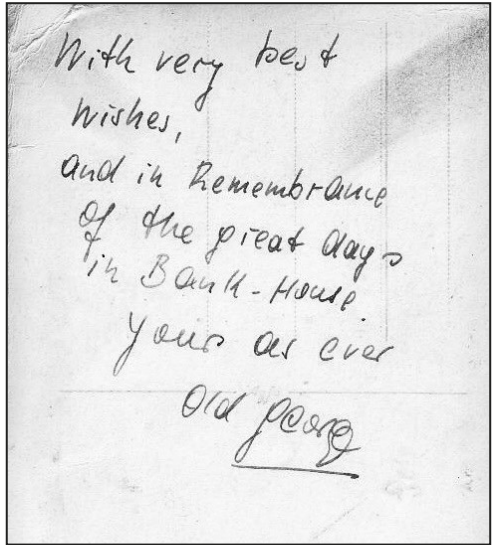 With very best
wishes,
and in Remembrance
of the great days
in Bank-House.
yours as ever
old georg